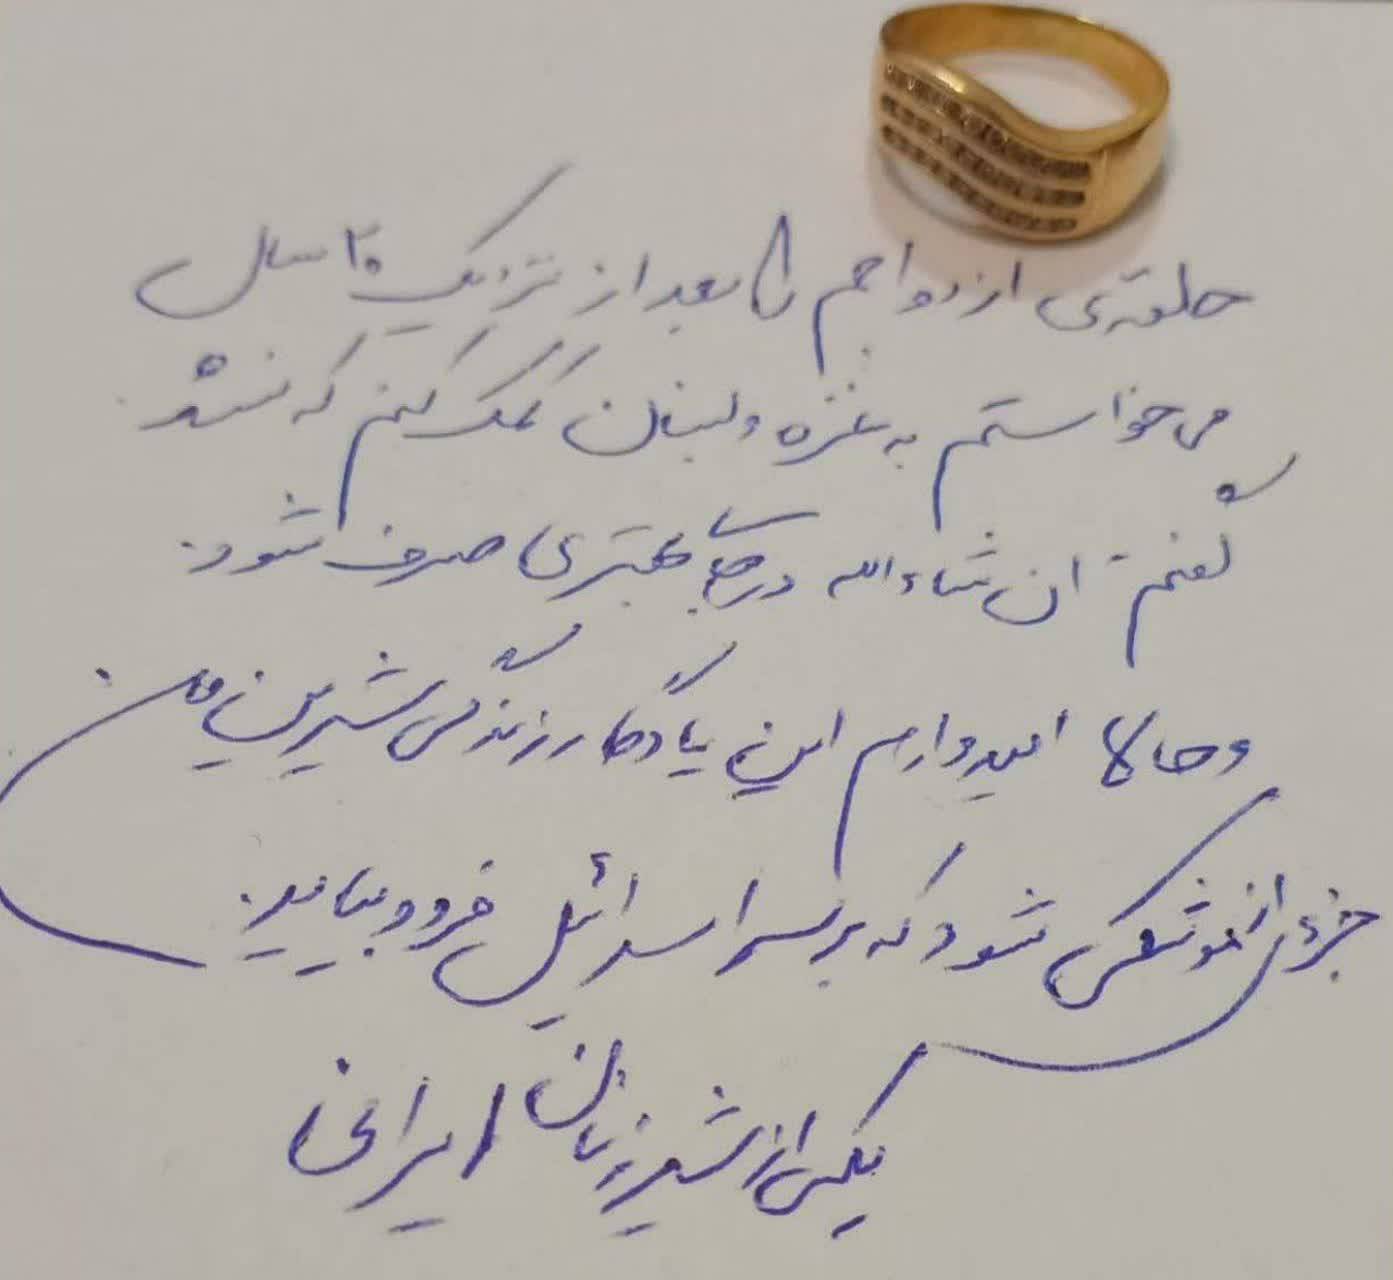 حلقه‌ی ازدواجم را بعد از نزدیک ۲۰ سال
می‌خواستم به غزه و لبنان کمک کنم که نشد.
گفتم ان شاءالله در جای بهتری صرف شود.
و حالا امیدوارم این یادگار زندگی شیرین من
جزوی از موشکی شود که بر سر اسرائیل فرود بیاید.
یکی از شیرزنان ایرانی